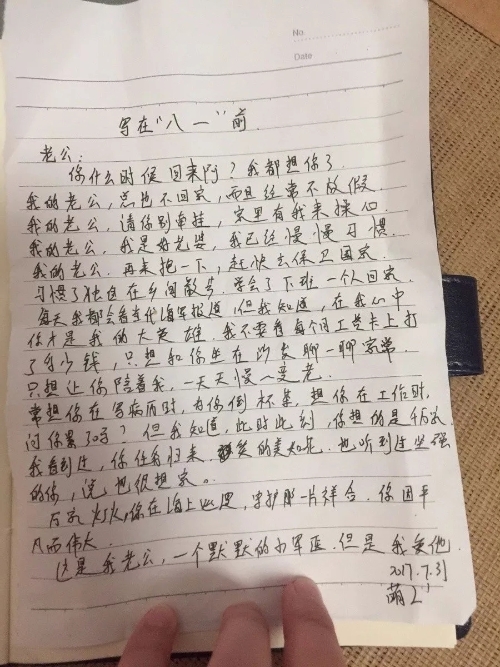 No.
Date
写在“八一”前
老公:
你什么时候回来阿?我都想你了
我的老公,总也不回家,而且经常不放假.
我的老公,请你别牵挂,家里有我来操心.
我的老公,我是好老婆,我已经慢慢习惯.
我的老公.再来抱一下,赶快去保卫国家.
习惯了独自在乡间散步,学会了下班一个人回家.
每天我都会看当代海军报道,但我知道,在我心中
你才是我的大英雄.我不要看每个月工资卡上打
了多少钱,只想和你坐在沙发聊一聊家常.
只想让你陪着我,一天天慢慢变老.
常想你在写病历时,为你倒杯茶,想你在工作时,
问你累了吗?但我知道,此时此刻,你想的是
我看到过,你任务归来,的美如花.也听到过坚强
的你,说也很想家.
万家灯火,你在海上巡逻,守护那一片祥合.你因平
凡而伟大.
这是我老公,一个默默的小军医.但是我爱他.
2017.7.31
萌